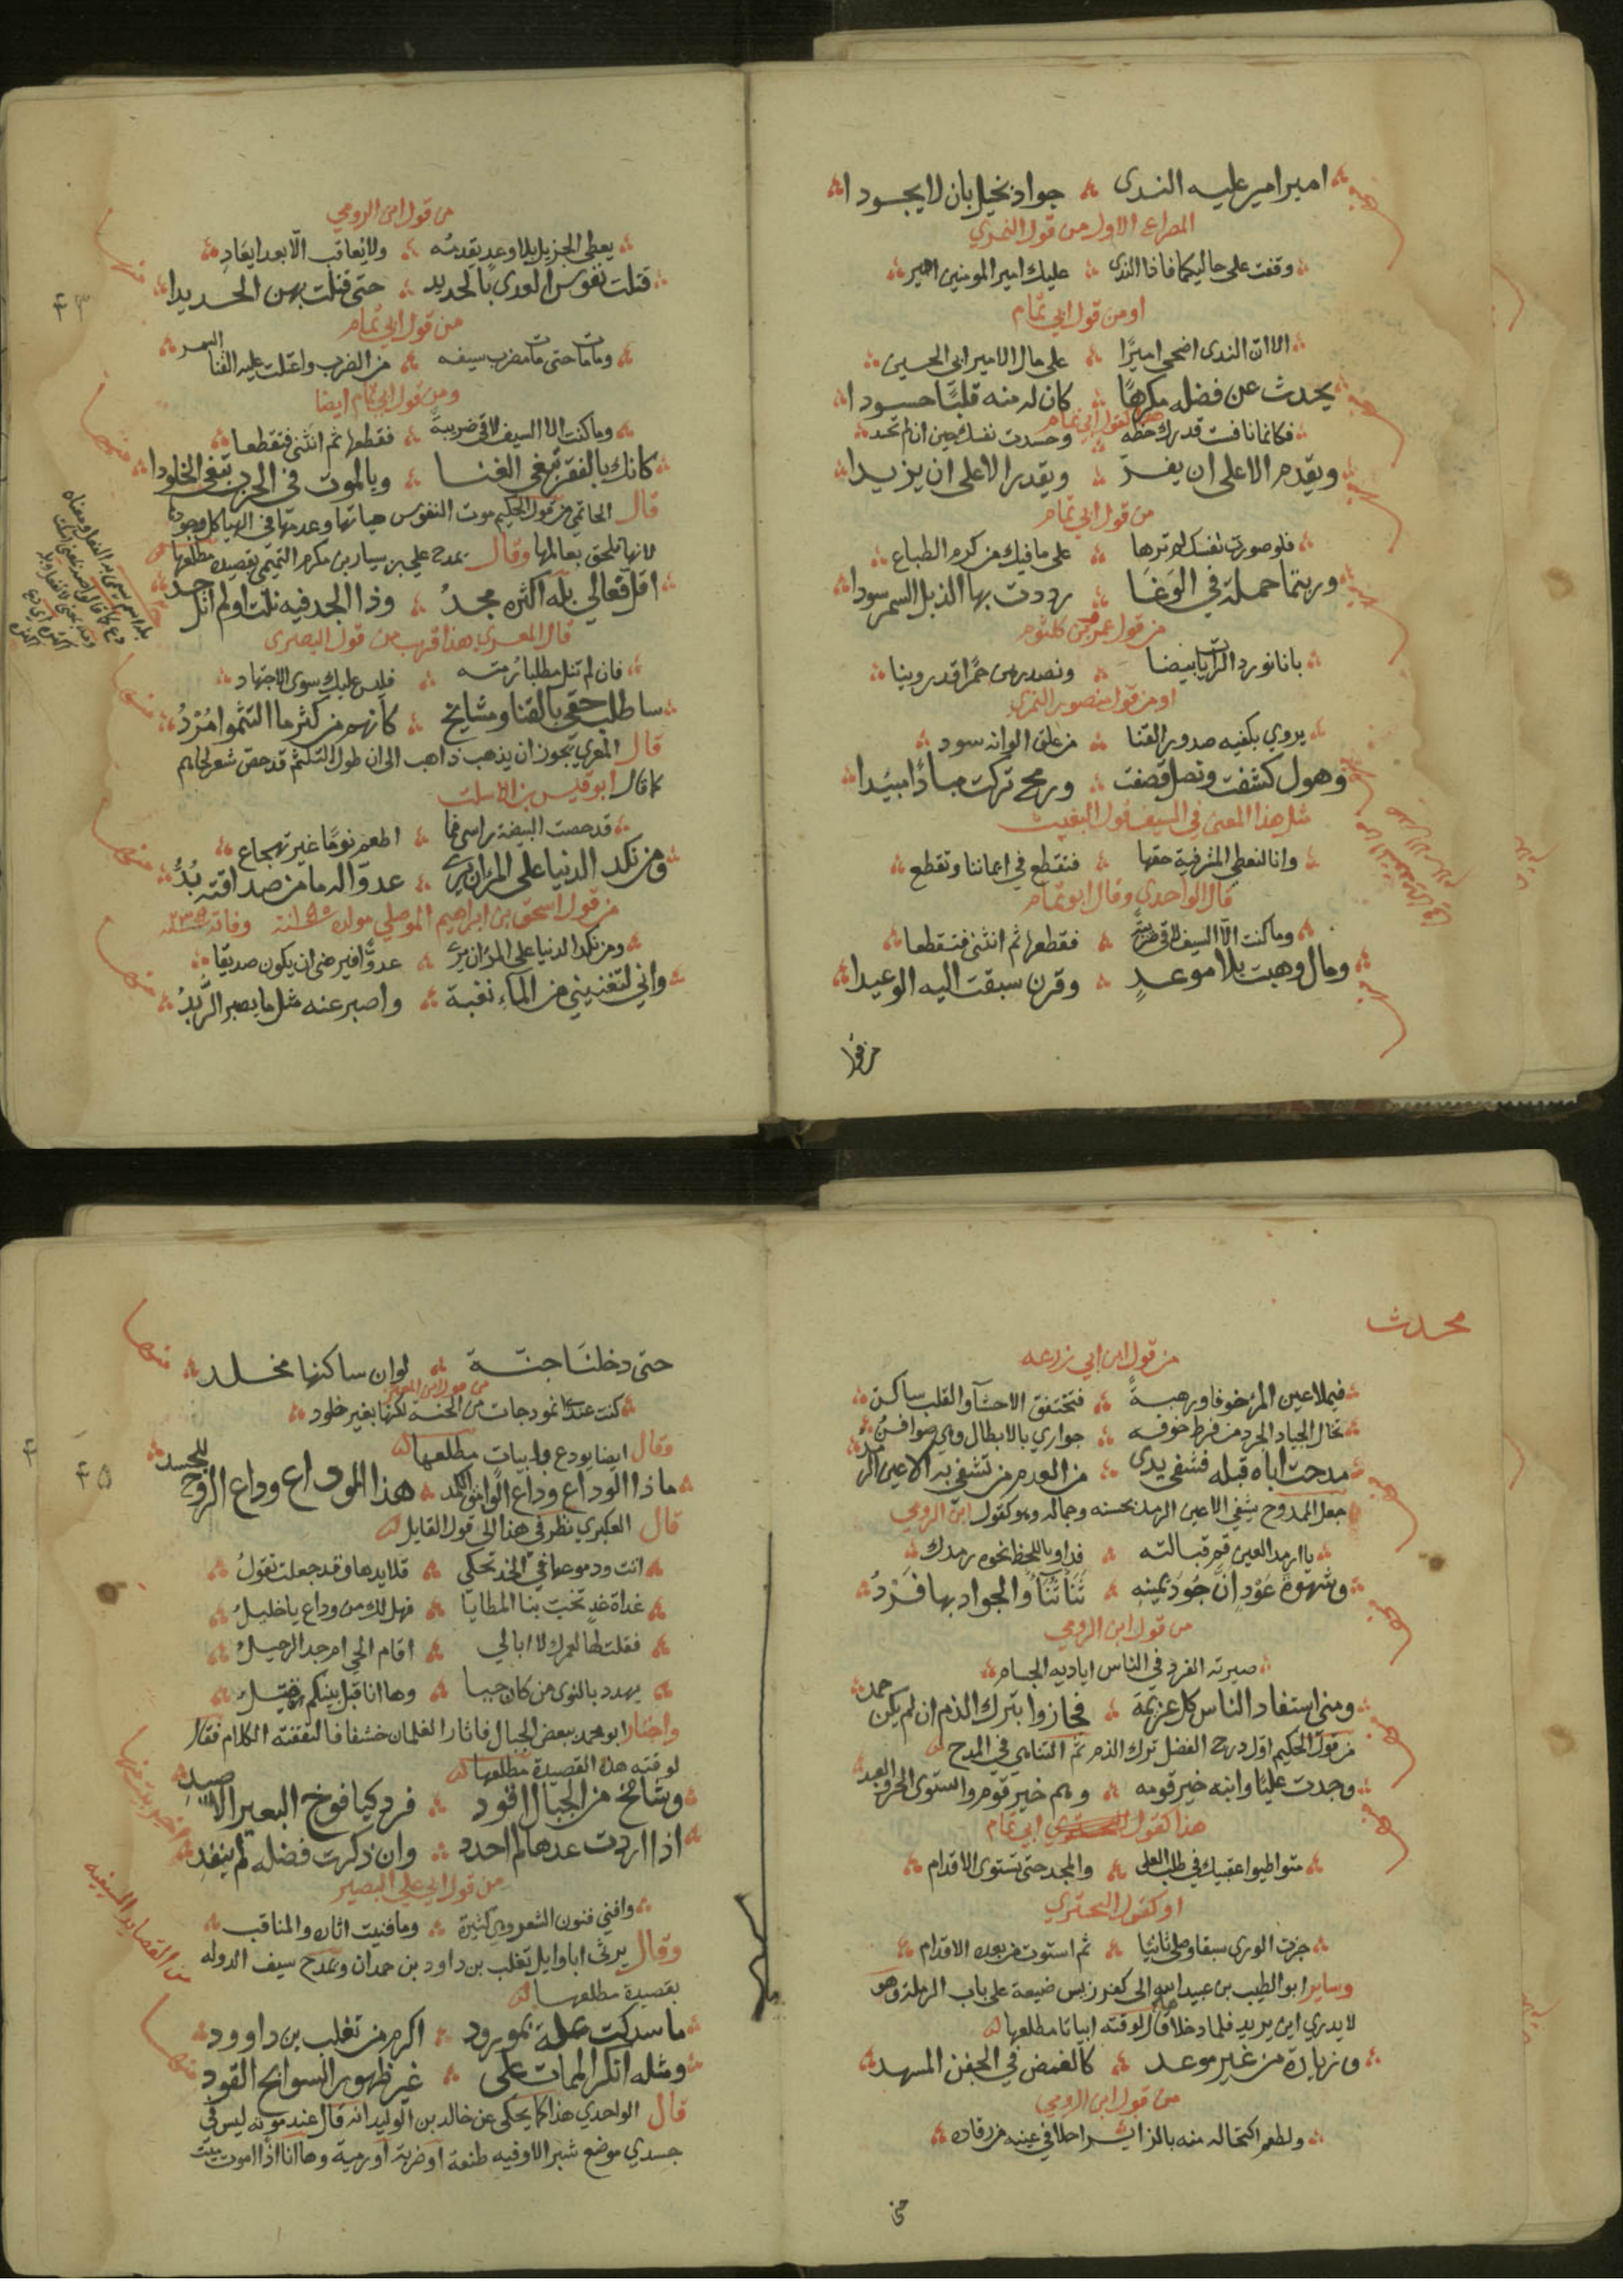 امير امير عليه الندى ۞ جواد بخيل بان لا يجودا
المصراع الاول من قول النمري
وقفت على حاليكما فاذا الندى ۞ عليك امير المومنين امير
او من قول ابي تمام
الا ان الندى اضحى اميرًا ۞ على مال الامير ابي الحسين
يحدث عن فضله مكرهًا ۞ كان له منه قلبًا حسودا
هو كقول ابي تمام
فكانما نافست قدرك حظه ۞ وحسدت نفسك حين ان لم تحسد
ويقدم الا على ان يفرّ ۞ ويقدر الا على ان يزيدا
من قول ابي تمام
فلو صورت نفسك لم تزدها ۞ على ما فيك من كرم الطباع
وربتما حملة في الوَغَا ۞ رددت بها الذبل السمر سودا
من قول عمرو بن كلثوم
بانا نورد الرايات بيضا ۞ ونصدرهن حمرًا قد روينا
او من قول منصور النمري
يروي بكفيه صدور القنا ۞ من علق الوانه سود
وهول كشفت ونصل قصفت ۞ ورمح تركت مبادًا مبيدا
مثل هذا المعنى في السيف قول البعيث
وانا لنعطي المشرفية حقها ۞ فتقطع في ايماننا وتقطع
قال الواحدي وقال ابو تمام
وما كنت الّا السيف لاقى ضريبةً ۞ فقطعها ثم انثنى فتقطعا
ومال وهبت بلا موعدٍ ۞ وقرن سبقت اليه الوعيدا
من قول
من قول ابن الرومي
يعطي الجزيل بلا وعدٍ يقدمُه ۞ ولا يعاقب الّا بعد ايعادِ
قتلت نفوس العدى بالحديد ۞ حتى قتلت بهن الحديدا
٤٣
من قول ابي تمام
وما مات حتى مات مضرب سيفه ۞ من الضرب واعتلت عليه القنا السمر
ومن قول ابي تمام ايضا
وما كنت الا السيف لاقى ضريبة ۞ فقطعها ثم انثنى فتقطعا
كانك بالفقر تبغي الغنا ۞ وبالموت في الحرب تبغي الخلودا
قال الحاتمي من قول الحكيم موت النفوس حياتها وعدمها في الهياكل وجودها
لانها تلحق بعالمها وقال يمدح علي بن سيار بن مكرم التميمي بقصيدة مطلعها
اقلّ فعالي بله اكثره مجدُ ۞ وذا الجد فيه نلت او لم انل جد
قال المعري هذا قريب من قول البصري
فان لم تنل مطلبا رمته ۞ فليس عليك سوى الاجتهاد
ساطلب حقي بالقنا ومشايخ ۞ كانهم من كثر ما التثموا مُرْدُ
قال المعري يجوز ان يذهب ذاهب الى ان طول التلثم قد حصّ شعر لحاهم
كما قال ابو قيس بن الاسلت
قد حصت البيضة راسي فما ۞ اطعم نومًا غير تهجاع
ومن نكد الدنيا على الحر ان يرى ۞ عدوّا له ما من صداقته بُدُّ
من قول اسحق بن ابراهيم الموصلي مولده سنة وفاته سنة
ومن نكد الدنيا على المرء ان يرى ۞ عدوًّا فيرضى ان يكون صديقا
واني لتغنيني من الماء نغبة ۞ واصبر عنه مثل ما يصبر الرُّبدُ
محدث
من قول ابن ابي زرعه
فيملا عين المرء خوفا ورهبةً ۞ فتختفق الاحشآ والقلب ساكن
تخال الجياد الجرد من فرط خوفه ۞ جواري بالابطال وهي صوافنُ
مدحت اباه قبله فشفى يدي ۞ من العدم من تشفى به الاعين الرمد
جعل الممدوح يشفي الاعين الرمد بحسنه وجماله وهو كقول ابن الرومي
يا ارمد العين قم قبالته ۞ فداو باللحظ نحوه رمدك
وشهوة عَوْدٍ انّ جُودَ يمينِهِ ۞ ثُنَاء ثُنَاء والجواد بها فَرْدُ
من قول ابن الرومي
صيرته الفرد في الناس اياديه الجسام
ومني استفاد الناس كل غريبة ۞ فجازوا بترك الذم ان لم يكن حمد
من قول الحكيم اول درج الفضل ترك الذم ثم التناهي في المدح
وجدت عليًا وابنه خير قومه ۞ وهم خير قوم واستوى الحر والعبد
هذا كقول ابي تمام
متواطيوا عقبيك في طلب العلى ۞ والمجد حتى تستوي الاقدام
او كقول البحتري
جزت الورى سبقا وصلى ثانيًا ۞ ثم استوت من بعده الاقدام
وساير ابو الطيب بن عبيد الله الى كفر زنس ضيعة على باب الرملة وهو
لا يدري اين يريد فلما دخلا قال لوقته ابياتا مطلعها
وزيارة من غير موعد ۞ كالغمض في الجفن المسهد
من قول ابن الرومي
ولطعم اكتحاله منه بالزاير احلا في عينه من رقاده
حتى دخلنَا جنة ۞ لو ان ساكنها مخلد
من قول ابن المعتز
كنت عندنا نموذجات من الجنة لكنها بغير خلود
وقال ايضا يودع وله بيات مطلعها
ماذا الوداع وداع الوامق الكمد ۞ هذا الوداع وداع الروح للجسد
٤٥
قال العكبري نظر في هذا الى قول القايل
انت ودموعها في الخد تحكي ۞ قلايدها وقد جعلت تقولُ
غداة غدٍ تخب بنا المطايا ۞ فهل لك من وداع يا خليلُ
فقلت لها لعمرك لا ابالي ۞ اقام الحي ام جد الرحيل
يهدد بالنوى من كان حيا ۞ وها انا قبل بينكم قتيل
واجتاز ابو محمد ببعض الجبال فاثار الغلمان خشفا فالتقفته الكلاب فقال
لوقته هذه القصيدة مطلعها
وشامخ من الجبال اقود ۞ فرد كيافوخ البعير الاصيد
اذا اردت عدها لم احدد ۞ وان ذكرت فضله لم ينفد
من قول ابي علي البصير
وافنى فنون الشعر وهي كثيرة ۞ وما فنيت اثاره والمناقب
وقال يرثي ابا وايل تغلب بن داود بن حمدان ويمدح سيف الدوله
بقصيدة مطلعها
من القصايد السيفيه
ما سدكت علة بمورود ۞ اكرم من تغلب بن داوود
ومثله انكر الممات على ۞ غير ظهور السوابح القود
قال الواحدي هذا كما يحكى عن خالد بن الوليد انه قال عند موته ليس في
جسدي موضع شبر الا وفيه طعنة او ضربة او رمية وها انا اذا اموت ميتت